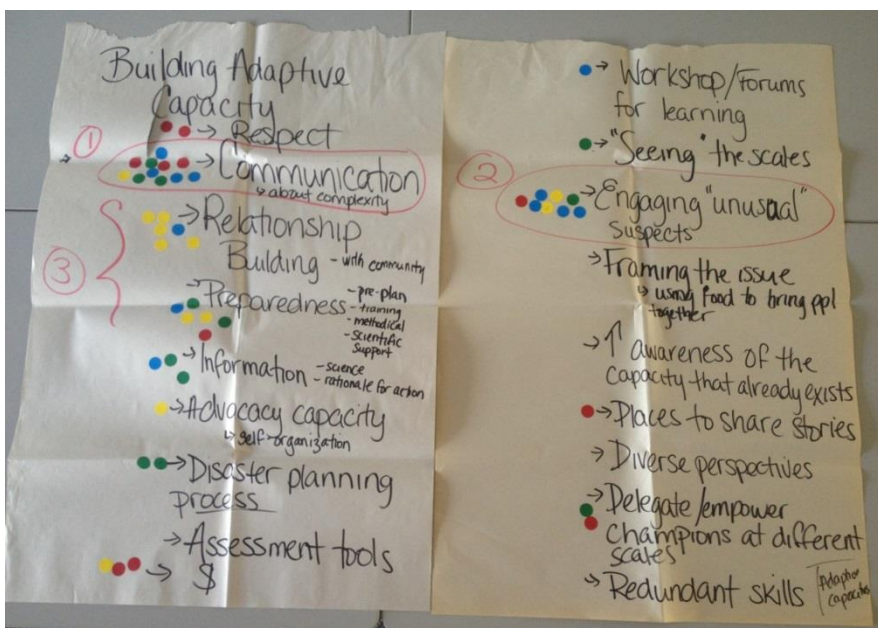 Building Adaptive
Capacity
→ Respect
① → Communication
↳ about complexity
③ → Relationship
Building - with community
→ Preparedness - pre-plan
- training
- methodical
- scientific
support
→ Information - science
- rationale for action
→ Advocacy capacity
↳ self-organization
→ Disaster planning
process
→ Assessment tools
→ $
→ Workshop/Forums
for learning
→ "Seeing" the scales
② → Engaging "unusual"
suspects
→ Framing the issue
↳ using food to bring ppl
together
→ ↑ awareness of the
capacity that already exists
→ Places to share stories
→ Diverse perspectives
→ Delegate/empower
Champions at different
scales
→ Redundant skills